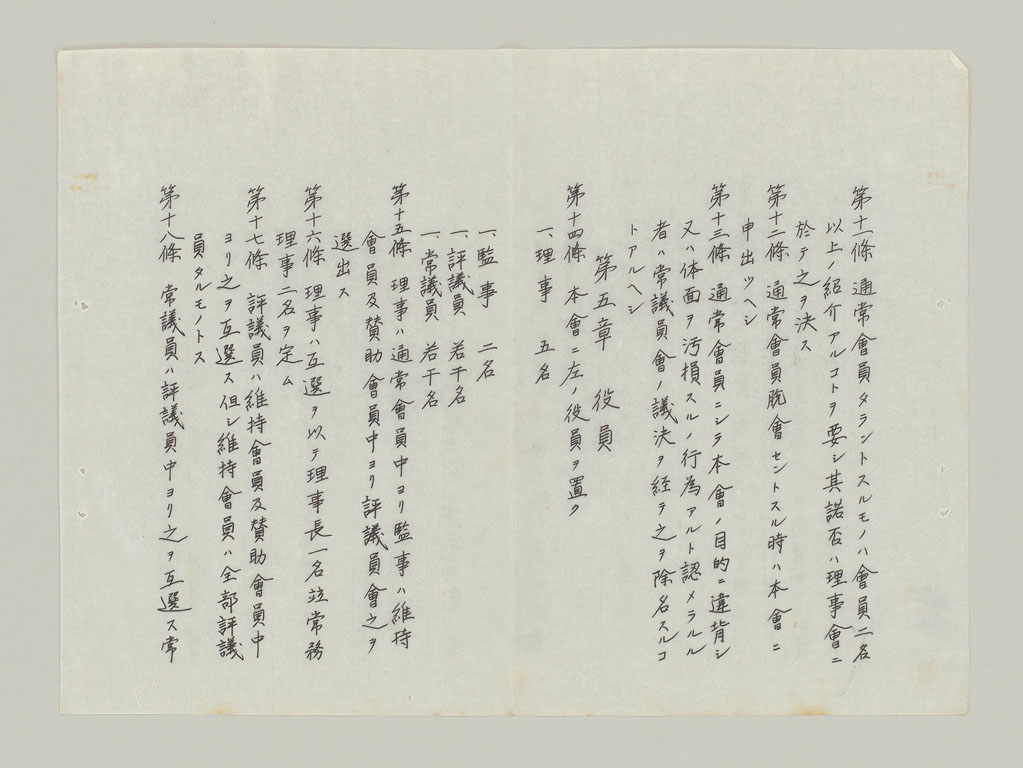 第十一條 通常會員タラントスルモノハ會員二名
以上ノ紹介アルコトヲ要シ其諾否ハ理事會ニ
於テ之ヲ決ス
第十二條 通常會員脱會セントスル時ハ本會ニ
申出ツヘシ
第十三條 通常會員ニシテ本會ノ目的ニ違背シ
又ハ体面ヲ汚損スルノ行為アルト認メラルル
者ハ常議員會ノ議決ヲ経テ之ヲ除名スルコ
トアルヘシ
第五章 役員
第十四條 本會ニ左ノ役員ヲ置ク
一、理事 五名
一、監事 二名
一、評議員 若干名
一、常議員 若干名
第十五條 理事ハ通常會員中ヨリ監事ハ維持
會員及賛助會員中ヨリ評議員會之ヲ
選出ス
第十六條 理事ハ互選ヲ以テ理事長一名竝常務
理事二名ヲ定ム
第十七條 評議員ハ維持會員及賛助會員中
ヨリ之ヲ互選ス但シ維持會員ハ全部評議
員タルモノトス
第十八條 常議員ハ評議員中ヨリ之ヲ互選ス常